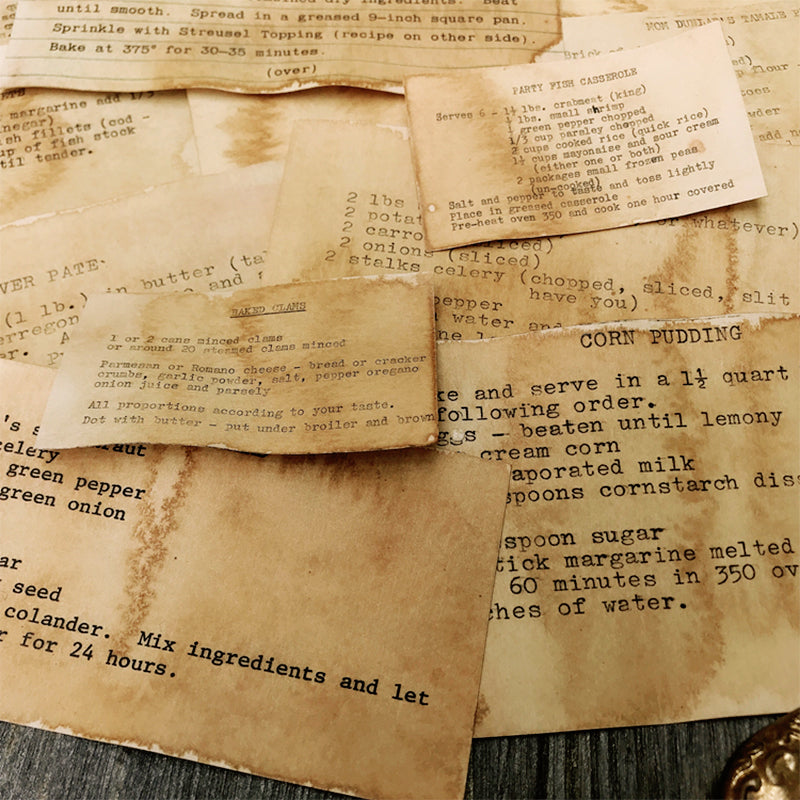 until smooth. Spread in a greased 9-inch square pan.
Sprinkle with Streusel Topping (recipe on other side).
Bake at 375° for 30-35 minutes.
(over)
margarine add 1/3
negar)
sh fillets (cod -
up of fish stock
til tender.
MOM DUNLAP'S TAMALE
Brick of
flour -
toes
wder
add
PARTY FISH CASSEROLE
Serves 6 - 1½ lbs. crabmeat (king)
½ lbs. small shrimp
½ green pepper chopped
1/3 cup parsley chopped
2 cups cooked rice (quick rice)
1½ cups mayonaise and sour cream
(either one or both)
2 packages small frozen peas
(un-cooked)
Salt and pepper to taste and toss lightly
Place in greased casserole
Pre-heat oven 350 and cook one hour covered
2 lbs
2 potat
2 carro
2 onions (sliced)
2 stalks celery (chopped, sliced, slit
or whatever)
have you)
pepper
water and
VER PATE
(1 lb.) in butter (ta
and
erregon
er.
BAKED CLAMS
1 or 2 cans minced clams
or around 20 steamed clams minced
Parmesan or Romano cheese - bread or cracker
crumbs, garlic powder, salt, pepper oregano
onion juice and parsely
All proportions according to your taste.
Dot with butter - put under broiler and brown
CORN PUDDING
ke and serve in a 1½ quart
following order.
ggs - beaten until lemony
cream corn
aporated milk
spoons cornstarch diss
spoon sugar
tick margarine melted
60 minutes in 350 ov
ches of water.
's s raut
celery
green pepper
green onion
ar
seed
colander. Mix ingredients and let
r for 24 hours.